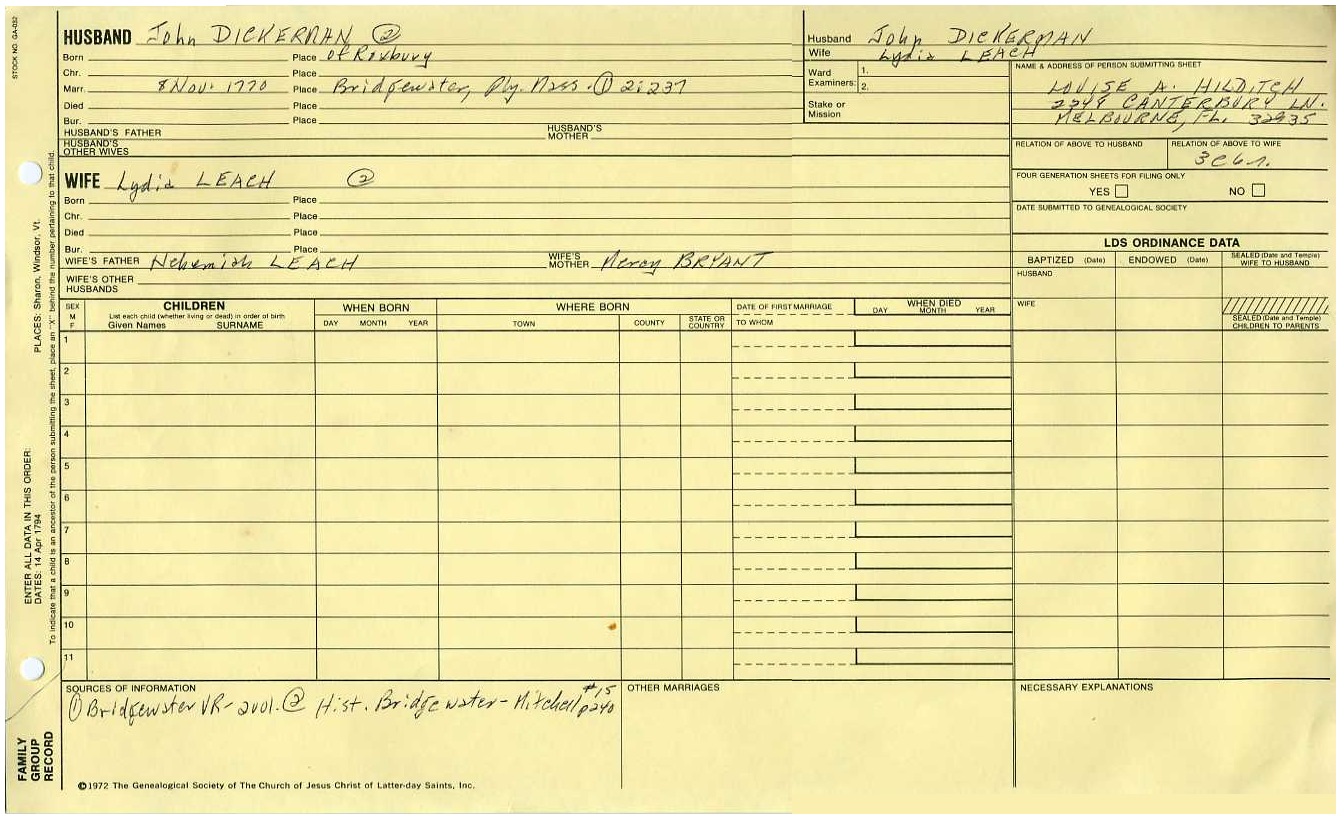 STOCK NO. GA-032
HUSBAND John DICKERMAN ②
Born Place of Roxbury
Chr. Place
Marr. 8 Nov. 1770 Place Bridgewater, Ply. Mass. ① 2:237
Died Place
Bur. Place
HUSBAND'S FATHER HUSBAND'S MOTHER
HUSBAND'S OTHER WIVES
WIFE Lydia LEACH ②
Born Place
Chr. Place
Died Place
Bur. Place
WIFE'S FATHER Nehemiah LEACH WIFE'S MOTHER Mercy BRYANT
WIFE'S OTHER HUSBANDS
Husband John DICKERMAN
Wife Lydia LEACH
Ward Examiners: 1.
2.
Stake or Mission
NAME & ADDRESS OF PERSON SUBMITTING SHEET
LOUISE A. HILDITCH
2249 CANTERBURY LN.
MELBOURNE, FL. 32935
RELATION OF ABOVE TO HUSBAND RELATION OF ABOVE TO WIFE
3C6r.
FOUR GENERATION SHEETS FOR FILING ONLY
YES NO
DATE SUBMITTED TO GENEALOGICAL SOCIETY
LDS ORDINANCE DATA
BAPTIZED (Date) ENDOWED (Date) SEALED (Date and Temple) WIFE TO HUSBAND
HUSBAND
WIFE
SEALED (Date and Temple) CHILDREN TO PARENTS
SEX M F
CHILDREN
List each child (whether living or dead) in order of birth
Given Names SURNAME
WHEN BORN
DAY MONTH YEAR
WHERE BORN
TOWN COUNTY STATE OR COUNTRY
DATE OF FIRST MARRIAGE
TO WHOM
WHEN DIED
DAY MONTH YEAR
1
2
3
4
5
6
7
8
9
10
11
SOURCES OF INFORMATION
① Bridgewater VR-2vol. ② Hist. Bridgewater-Mitchell #15 p240
OTHER MARRIAGES
NECESSARY EXPLANATIONS
©1972 The Genealogical Society of The Church of Jesus Christ of Latter-day Saints, Inc.
FAMILY GROUP RECORD
ENTER ALL DATA IN THIS ORDER:
DATES: 14 Apr 1794
PLACES: Sharon, Windsor, Vt.
To indicate that a child is an ancestor of the person submitting the sheet, place an "X" behind the number pertaining to that child.